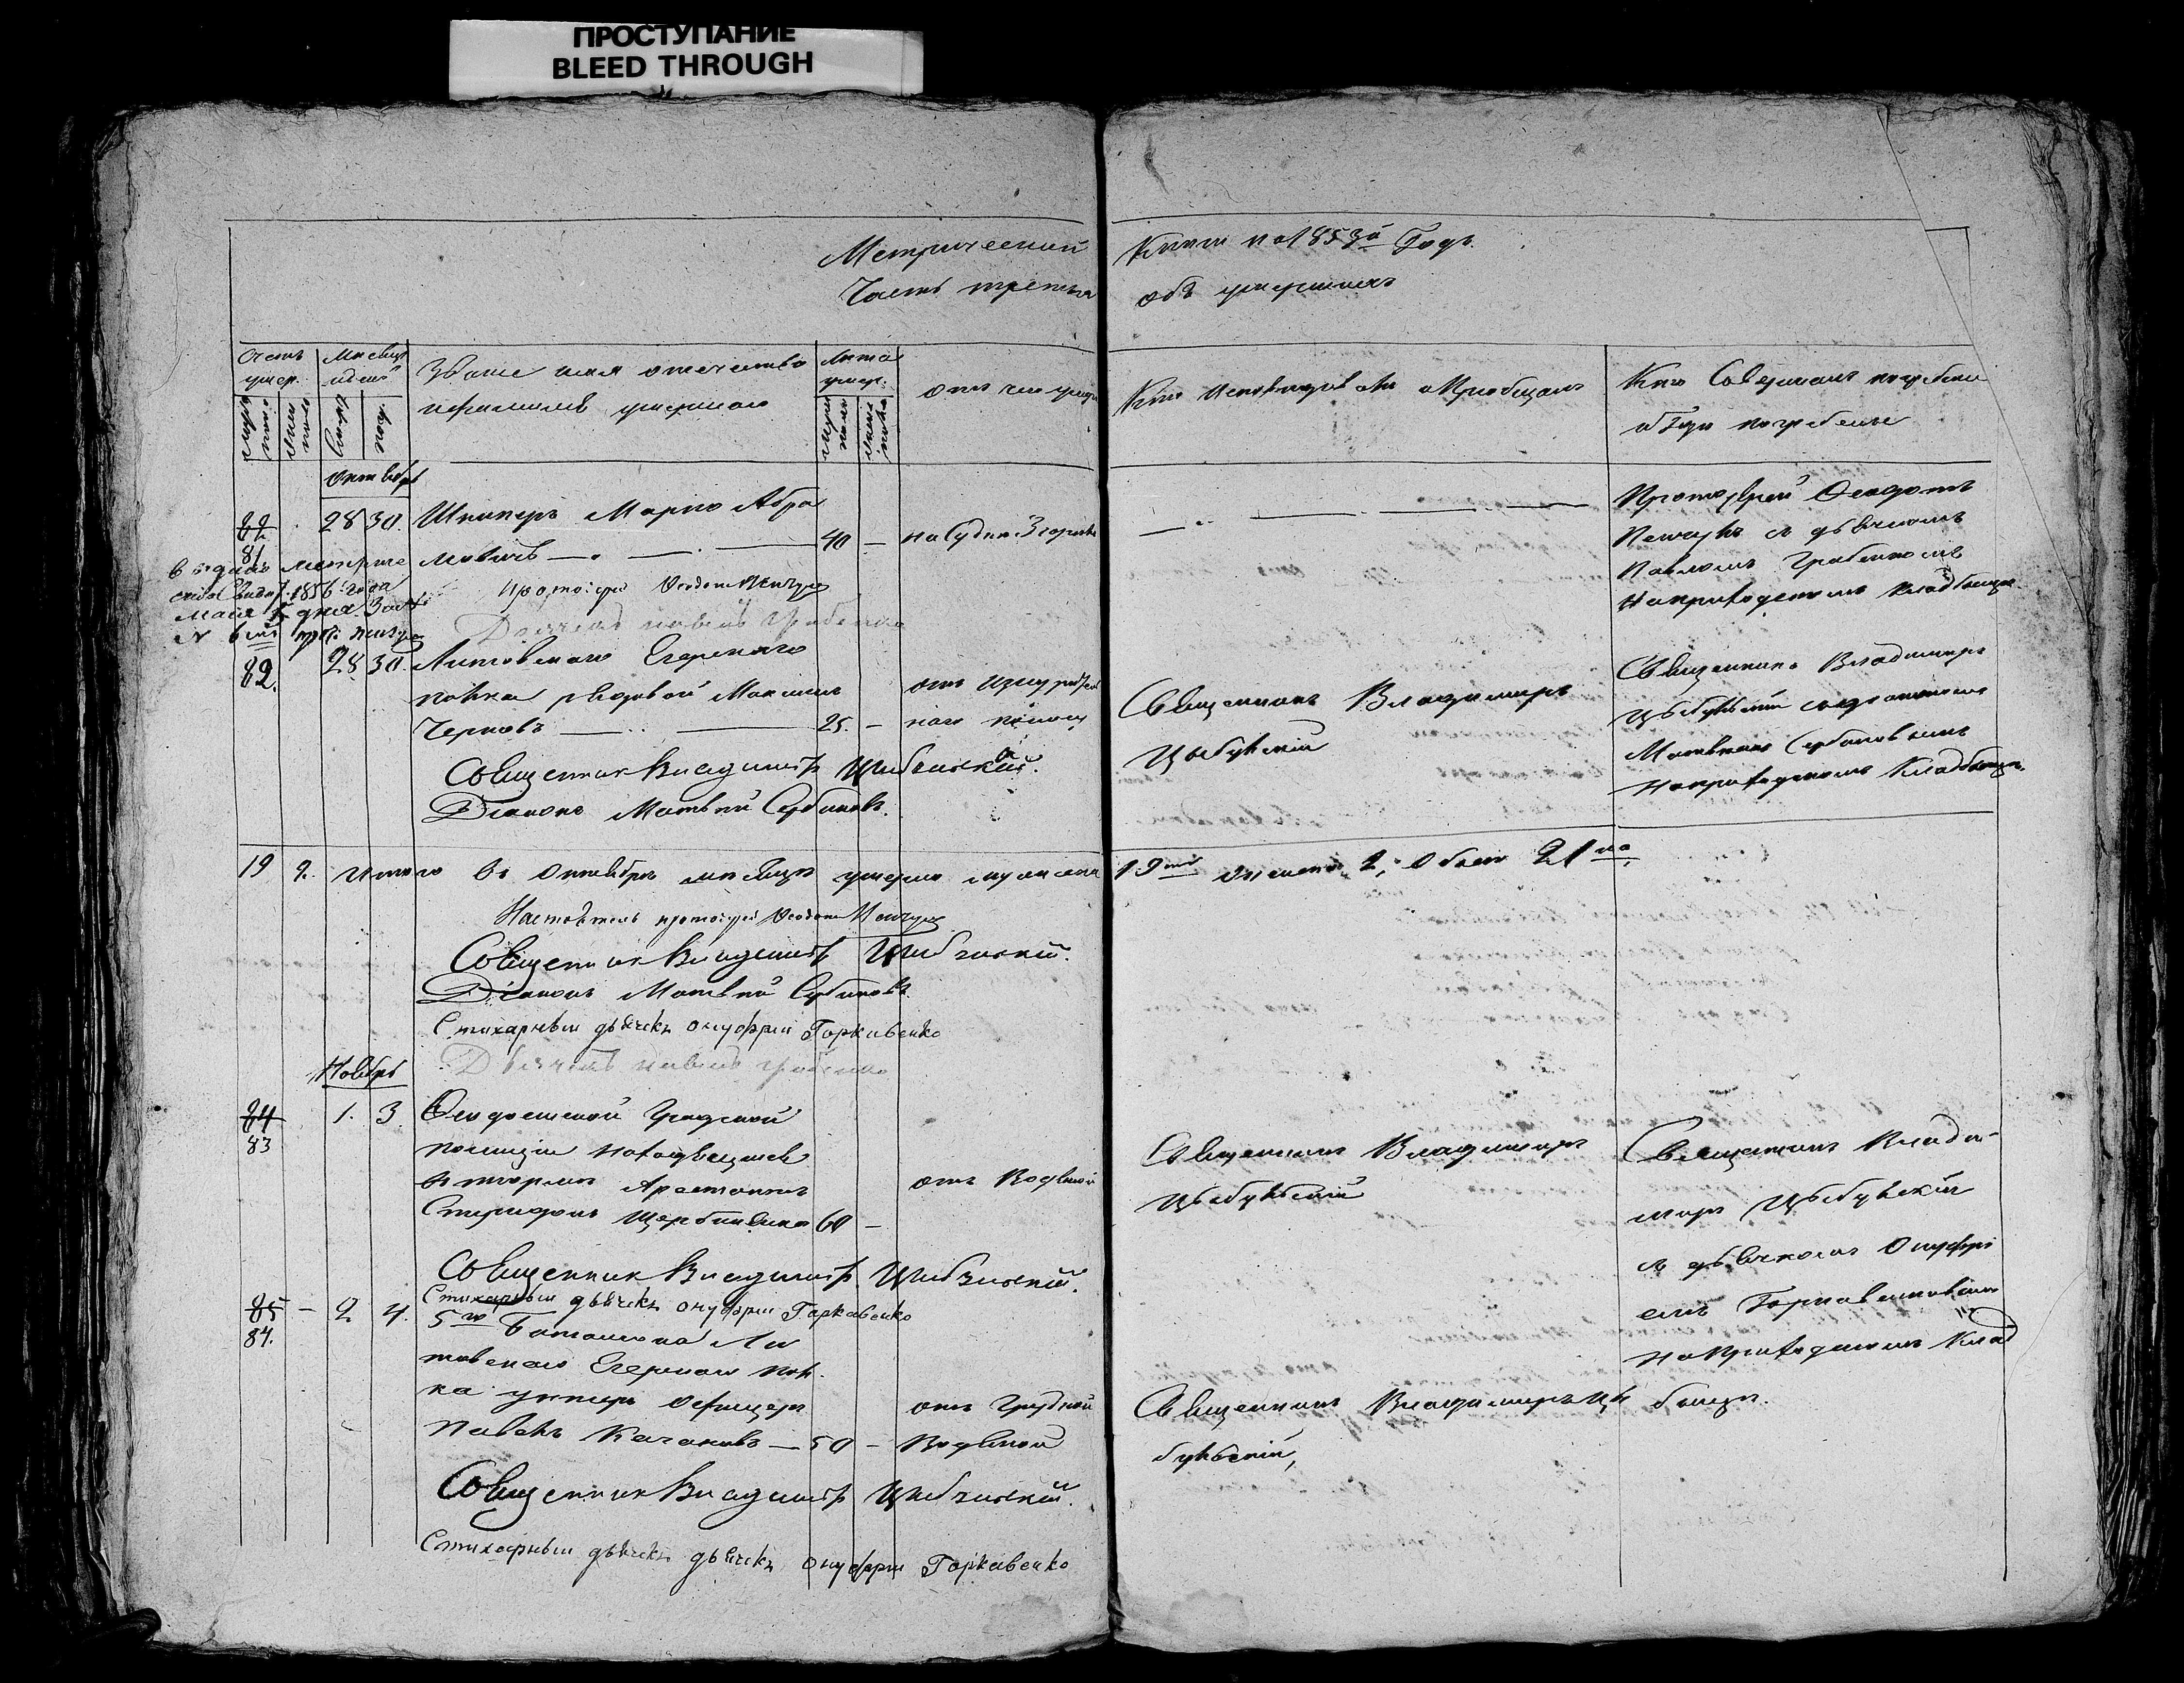 ПРОСТУПАНИЕ
BLEED THROUGH
Метрической
Книги на 1853й Годъ.
Часть третья
объ умершихъ
Счетъ умер.
Мѣсяцъ и день
Званіе имя отечество
и фамилія умершаго
Лѣта умер.
отъ чего умеръ
Кто исповѣдывалъ и пріобщалъ
Кто Совершалъ погребеніе
и Гдѣ погребены
Октябрь
82
81
28 30.
Шкиперъ Марко Абра
мовичъ
40 —
Протоіерей Ѳеодотъ
съ дьячкомъ
Павломъ Гребенкомъ
На приходскомъ кладбищѣ
1856 года
Мая
протоіерей Ѳеодотъ
Дьячекъ Павелъ Гребенко
82.
28 30.
Литовскаго Егерскаго
полка рядовой Максимъ
Черновъ
25. —
отъ изнурител
наго поносу
Священникъ Владимиръ
Цыбульскій
Священникъ Владимиръ
Цыбульскій съ діакономъ
Матвѣемъ Сербиновымъ
На приходскомъ Кладбищѣ.
Священник Владимір Цибульскій.
Діаконъ Матвѣй Сербиновъ.
19 2. Итого въ Октябрѣ мѣсяцѣ умерло муж. пола
19ть женска 2, Обоего 21 на
Настоятель протоіерей Ѳеодотъ
Священник Владимір Цибульскій.
Діаконъ Матвѣй Сербиновъ
Стихарный дьячекъ Онуфрій Горкавенко
Дьячекъ Павелъ Гребенко
Ноябрь
84
83
1. 3.
Ѳеодосійской Градской
полиціи находящійся
Арестантъ
Спиридонъ Щербина 60 —
отъ Водяной
Священникъ Владимиръ
Цыбульскій
Священникъ Влади-
миръ Цыбульскій
съ дьячкомъ Онуфрі
емъ Горкавенковымъ
На Приходскомъ Клад
бищѣ.
Священник Владимір Цибульскій.
Стихарный дьячекъ Онуфрій Горкавенко
85
84.
— 2 4.
5го Баталіона Ли
товскаго Егерскаго пол
ка унтеръ Офицеръ
Павелъ Качановъ — 50 —
отъ Грудной
Водяной
Священникъ Владимиръ Цы
бульскій,
Священник Владимір Цибульскій.
Стихарный дьячекъ дьячекъ Онуфрій Горкавенко